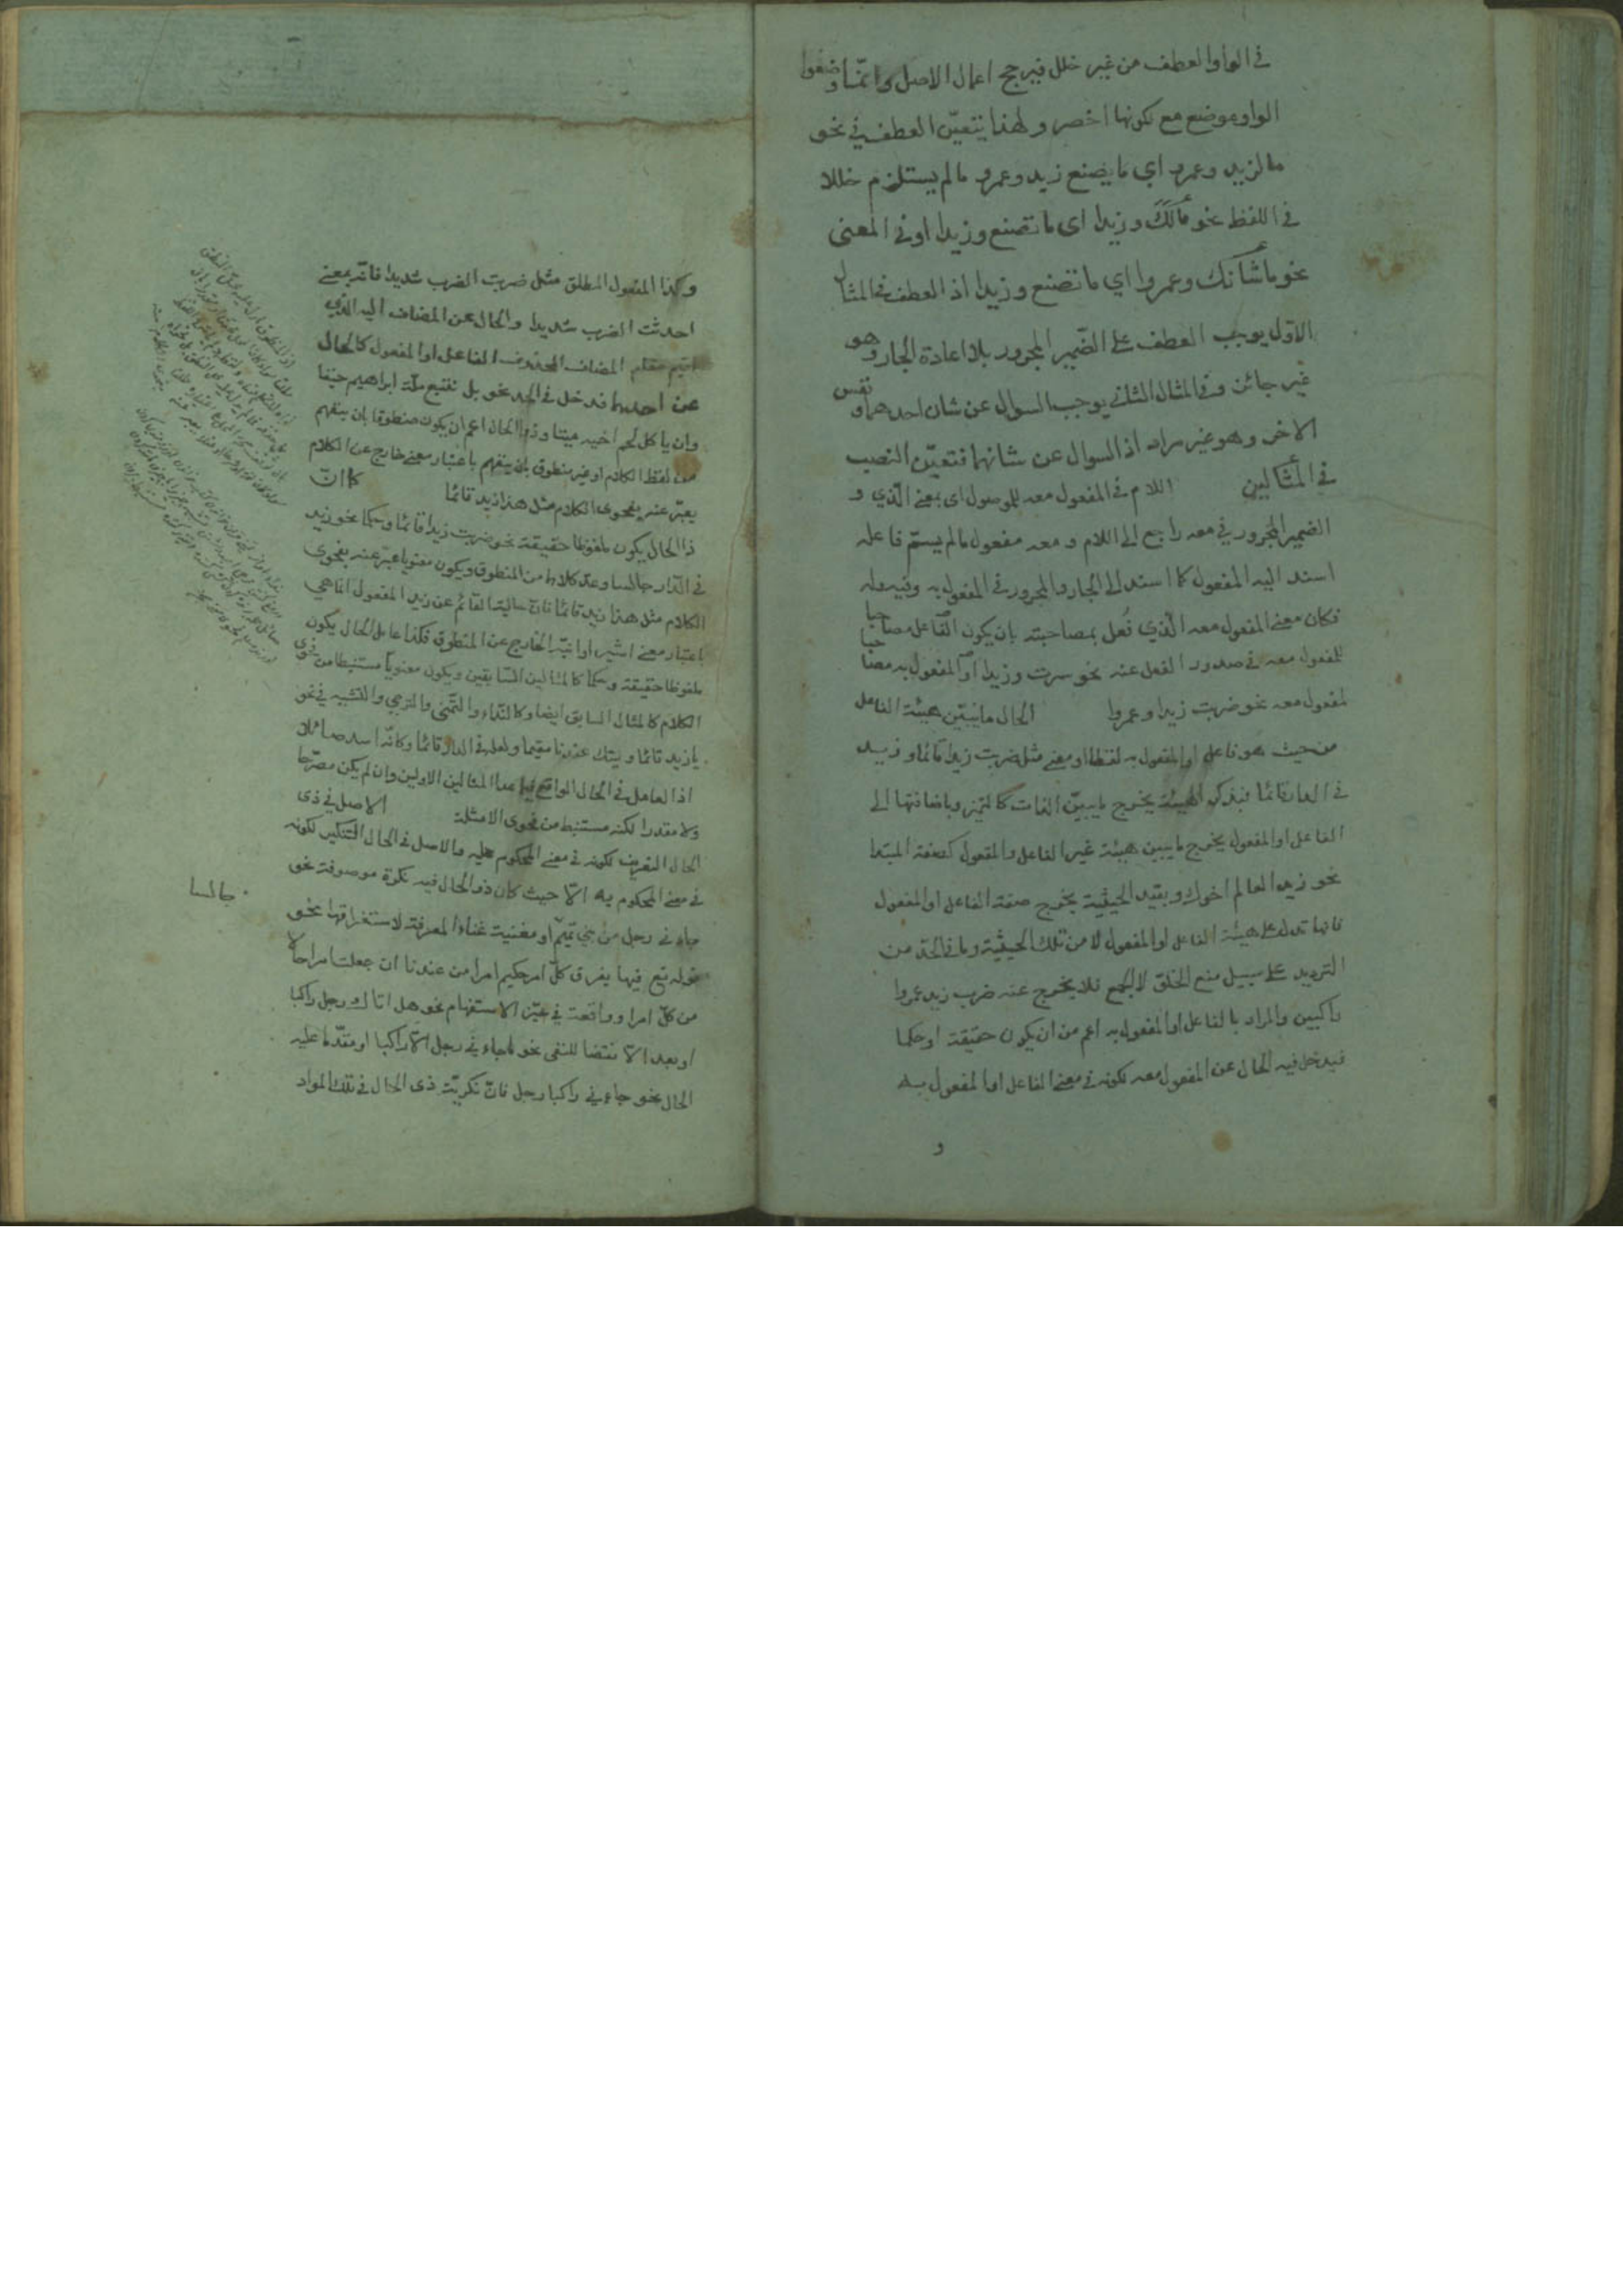 في الواو العطف من غير خلل فيرجح اعمال الاصل وانما وضعوا
الواو موضع مع لكونها اخصر ولهذا يتعيّن العطف في نحو
ما لزيد وعمرو اي ما يصنع زيد وعمرو ما لم يستلزم خللا
في اللفظ نحو مالَكَ وزيدا اى ما تصنع وزيدا او في المعنى
نحو ما شأنك وعمروا اي ما تصنع وزيدا اذ العطف في المثال
الاوّل يوجب العطف على الضمير المجرور بلا اعادة الجار وهو
غير جائز وفي المثال الثاني يوجب السوال عن شان احدهما ونفس
الاخر وهو غير مراد اذ السوال عن شانهما فتعيّن النصب
في المثالين اللام في المفعول معه للموصول اى بمعنى الّذي و
الضمير المجرور في معه راجع الى اللام ومعه مفعول ما لم يسمّ فاعله
اسند اليه المفعول كما اسند الى الجار والمجرور في المفعول به وفيه وله
فكان معنى المفعول معه الّذي فُعل بمصاحبته بان يكون الفاعل مصاحبا
للمفعول معه في صدور الفعل عنه نحو سرت وزيدا او المفعول به مصاحبا
لمفعول معه نحو ضربت زيدا وعمروا الحال ما يبيّن هيئة الفاعل
من حيث هو فاعل او المفعول به لفظا او معنى مثل ضربت زيدا قائما وزيد
في الدار قائما فبذكر الهيئة يخرج ما يبيّن الذات كالتميز وباضافتها الى
الفاعل او المفعول يخرج ما يبين هيئة غير الفاعل والمفعول كصفة المبتدا
نحو زيد العالم اخوك وبقيد الحيثية يخرج صفة الفاعل او المفعول
فانها تدل على هيئة الفاعل او المفعول لا من تلك الحيثية وما في الحدّ من
الترديد على سبيل منع الخلوّ لا الجمع فلا يخرج عنه ضرب زيد عمروا
راكبين والمراد بالفاعل او المفعول به اعم من ان يكون حقيقة او حكما
فيدخل فيه الحال عن المفعول معه لكونه في معنى الفاعل او المفعول به
و
وكذا المفعول المطلق مثل ضربت الضرب شديدا فانّه بمعنى
احدثت الضرب شديدا والحال عن المضاف اليه الذي
اقيم مقام المضاف المحذوف الفاعل او المفعول كالحال
عن احدهما فدخل في الحد نحو بل نتبع ملّة ابراهيم حنيفا
وان ياكل لحم اخيه ميتا وذو الحال اعم ان يكون منطوقا بان يفهم
من لفظ الكلام او غير منطوق بان يفهم باعتبار معنى خارج عن الكلام
يعبّر عنه بفحوى الكلام مثل هذا زيد قائما كما انّ
ذا الحال يكون ملفوظا حقيقة نحو ضربت زيدا قائما وحكما نحو زيد
في الدّار جالسا وعدّ كلاهما من المنطوق ويكون معنويا عبّر عنه بفحوى
الكلام مثل هذا زيد قائما فانّ حالية القائم عن زيد المفعول انما هي
باعتبار معنى اشير او انبّه الخارج عن المنطوق فكذا عامل الحال يكون
ملفوظا حقيقة وحكما كالمثالين السّابقين ويكون معنويا مستنبطا من فحوى
الكلام كالمثال السابق ايضا وكالنّداء والتّمنى والترجي والتشبيه في نحو
يا زيد قائما وليتك عندنا مقيما ولعله في الدار قائما وكانّه اسد صائلا
اذ العامل في الحال الواقع فيما عدا المثالين الاولين وان لم يكن مصرّحا
ولا مقدرا لكنه مستنبط من فحوى الامثلة الاصل في ذى
الحال التعريف لكونه في معنى المحكوم عليه والاصل في الحال التنكير لكونه
في معنى المحكوم به الّا حيث كان ذو الحال فيه نكرة موصوفة نحو
جاءني رجل من بني تميم او مغنية غناء المعرفة لاستغراقها نحو
قوله تع فيها يفرق كلّ امر حكيم امرا من عندنا ان جعلت امرا حالا
من كلّ امر او واقعة في حيّز الاستفهام نحو هل اتاك رجل راكبا
او بعد الّا نقضا للنفي نحو ما جاءني رجل الّا راكبا او مقدّما عليه
الحال نحو جاءني راكبا رجل فانّ نكريّة ذى الحال في تلك المواد
جالسا